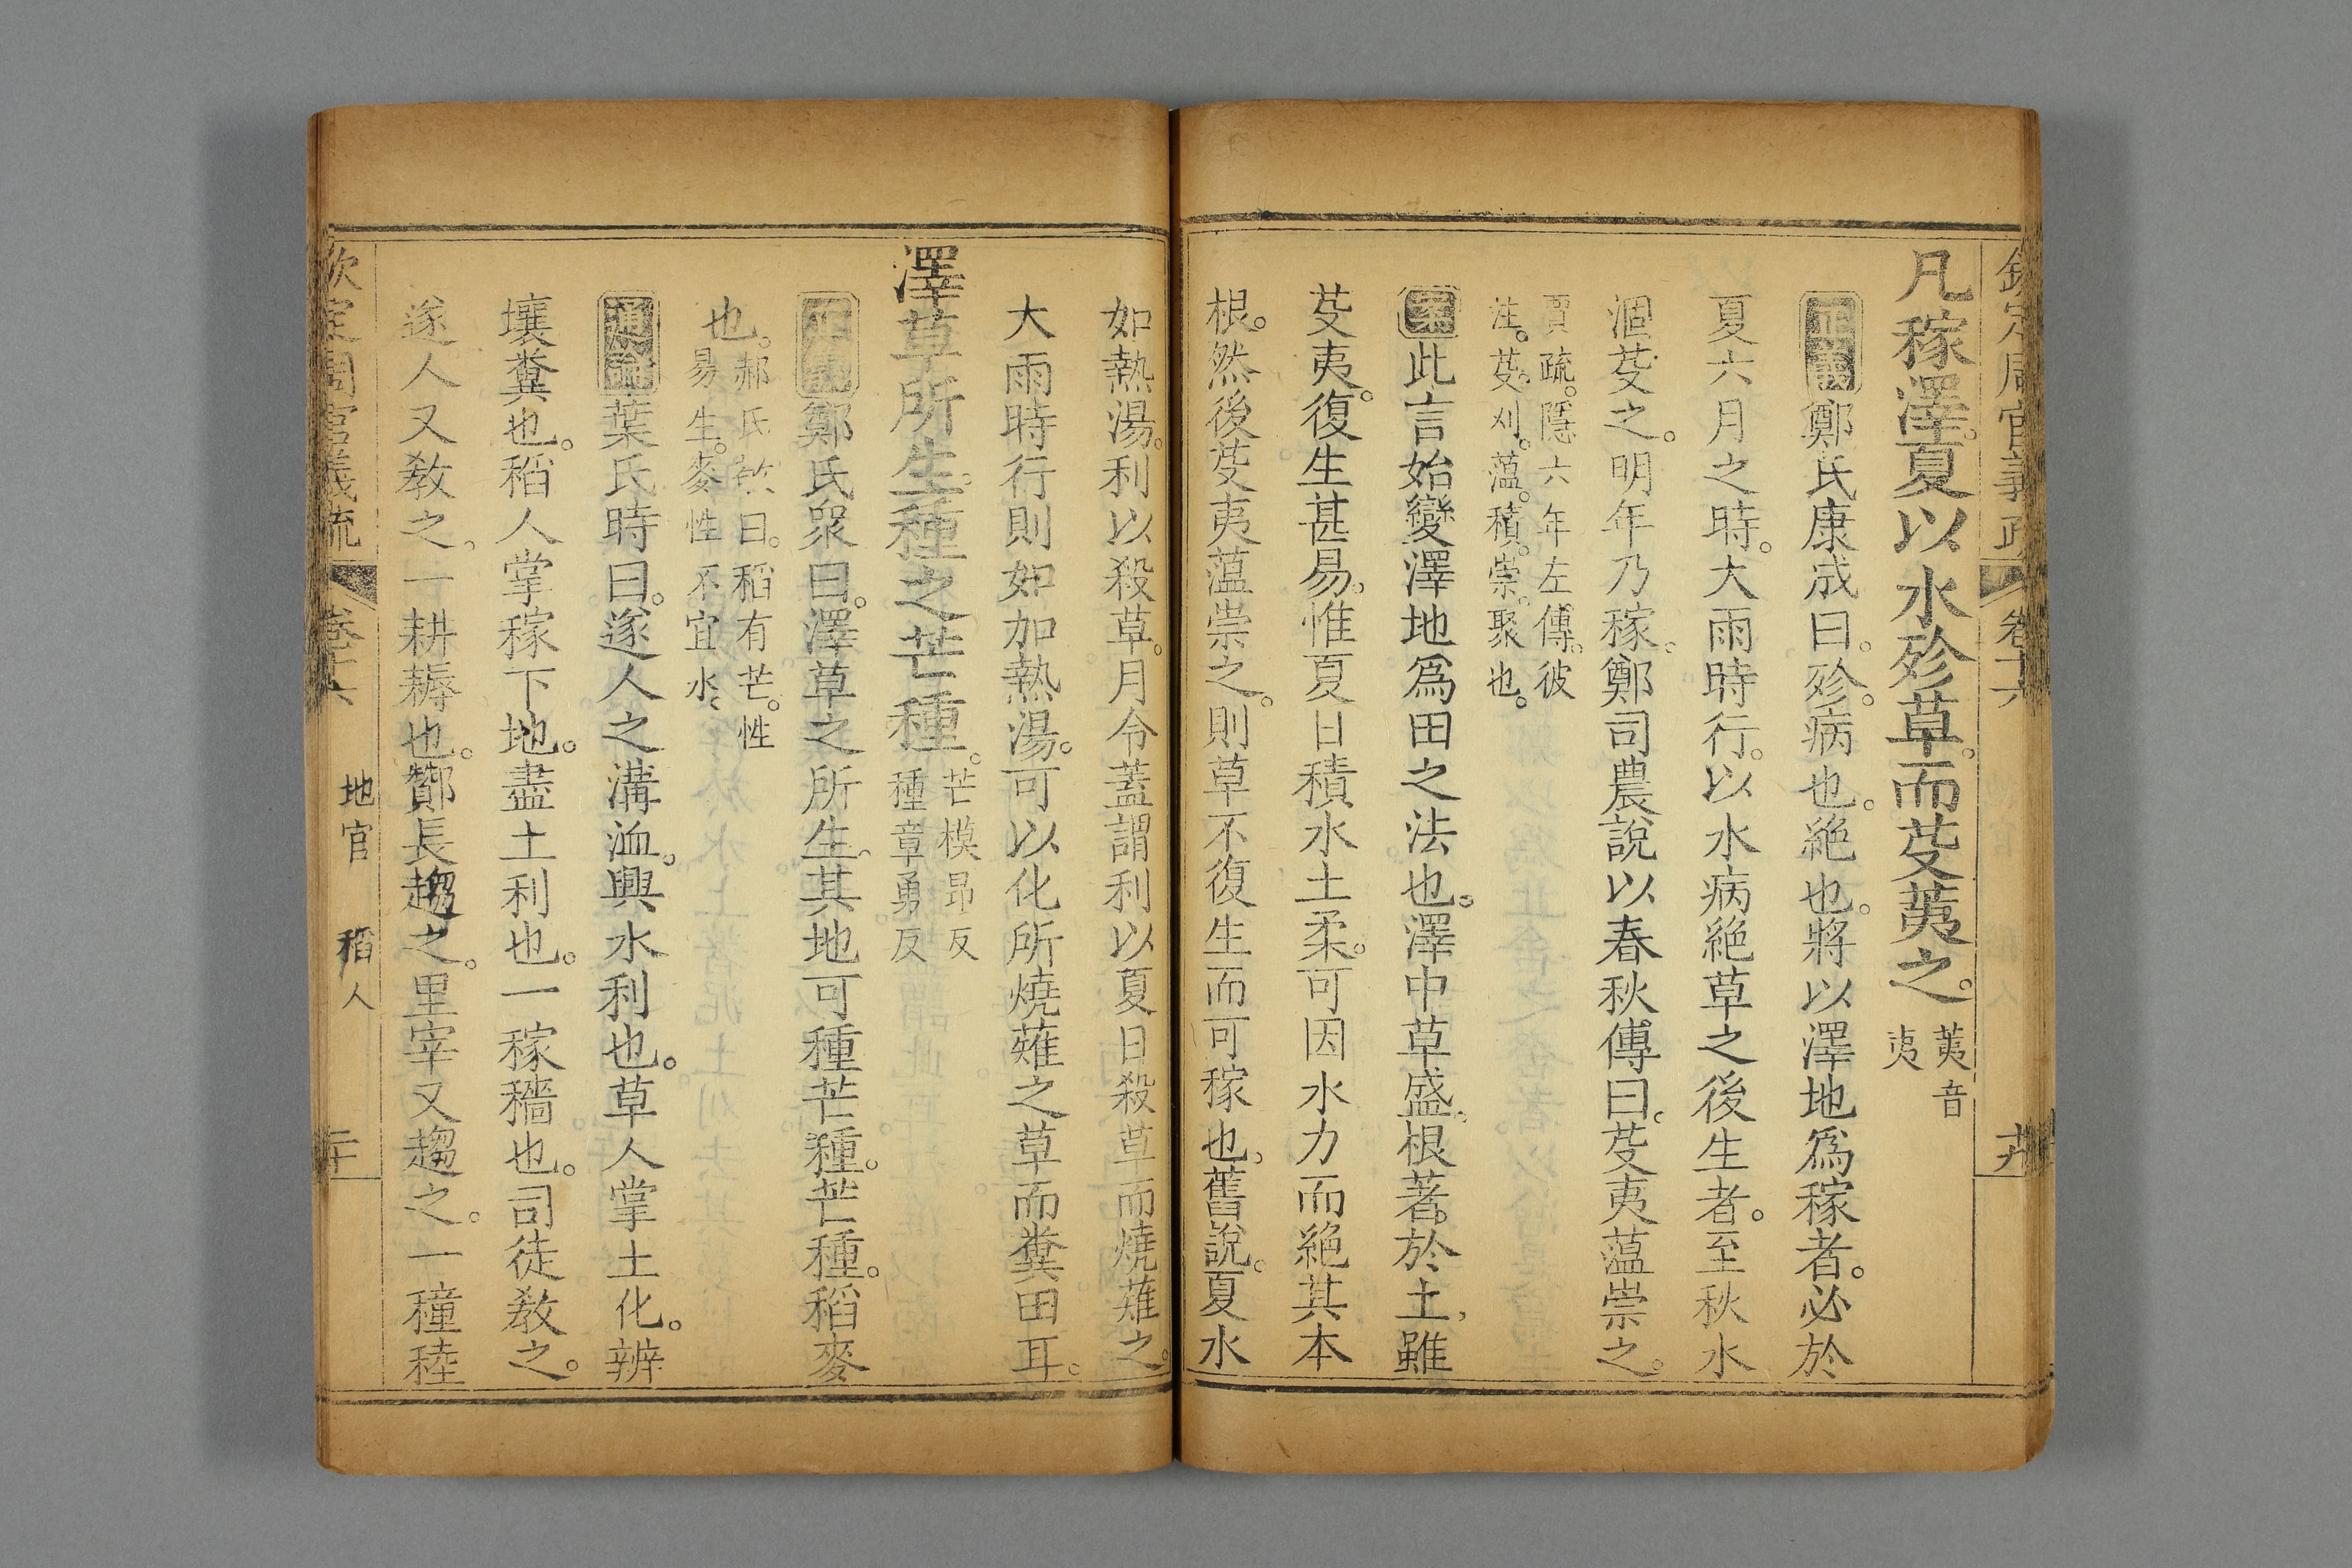 欽定周官義疏 卷十六 十九
凡稼澤。夏以水殄草。而芟荑之。荑音夷
正義鄭氏康成曰。殄。病也。絕也。將以澤地爲稼者。必於
夏六月之時。大雨時行。以水病絕草之後生者。至秋水
涸。芟之。明年乃稼。鄭司農說以春秋傳曰。芟夷薀崇之。
賈疏。隱六年左傳。彼
注。芟。刈。薀。積。崇。聚也。
案此言始變澤地爲田之法也。澤中草盛。根著於土。雖
芟夷。復生甚易。惟夏日積水土柔。可因水力而絕其本
根。然後芟夷薀崇之。則草不復生而可稼也。舊說。夏水
如熱湯。利以殺草。月令蓋謂利以夏日殺草而燒薙之。
大雨時行則如加熱湯。可以化所燒薙之草而糞田耳。
澤草所生。種之芒種。芒模昂反種章勇反
正義鄭氏眾曰。澤草之所生。其地可種芒種。芒種。稻麥
也。郝氏敬曰。稻有芒。性
易生。麥性不宜水。
通論葉氏時曰。遂人之溝洫。興水利也。草人掌土化。辨
壤糞也。稻人掌稼下地。盡土利也。一稼穡也。司徒教之。
遂人又教之。一耕耨也。酇長趨之。里宰又趨之。一穜稑
欽定周官義疏 卷十六 地官 稻人 二十